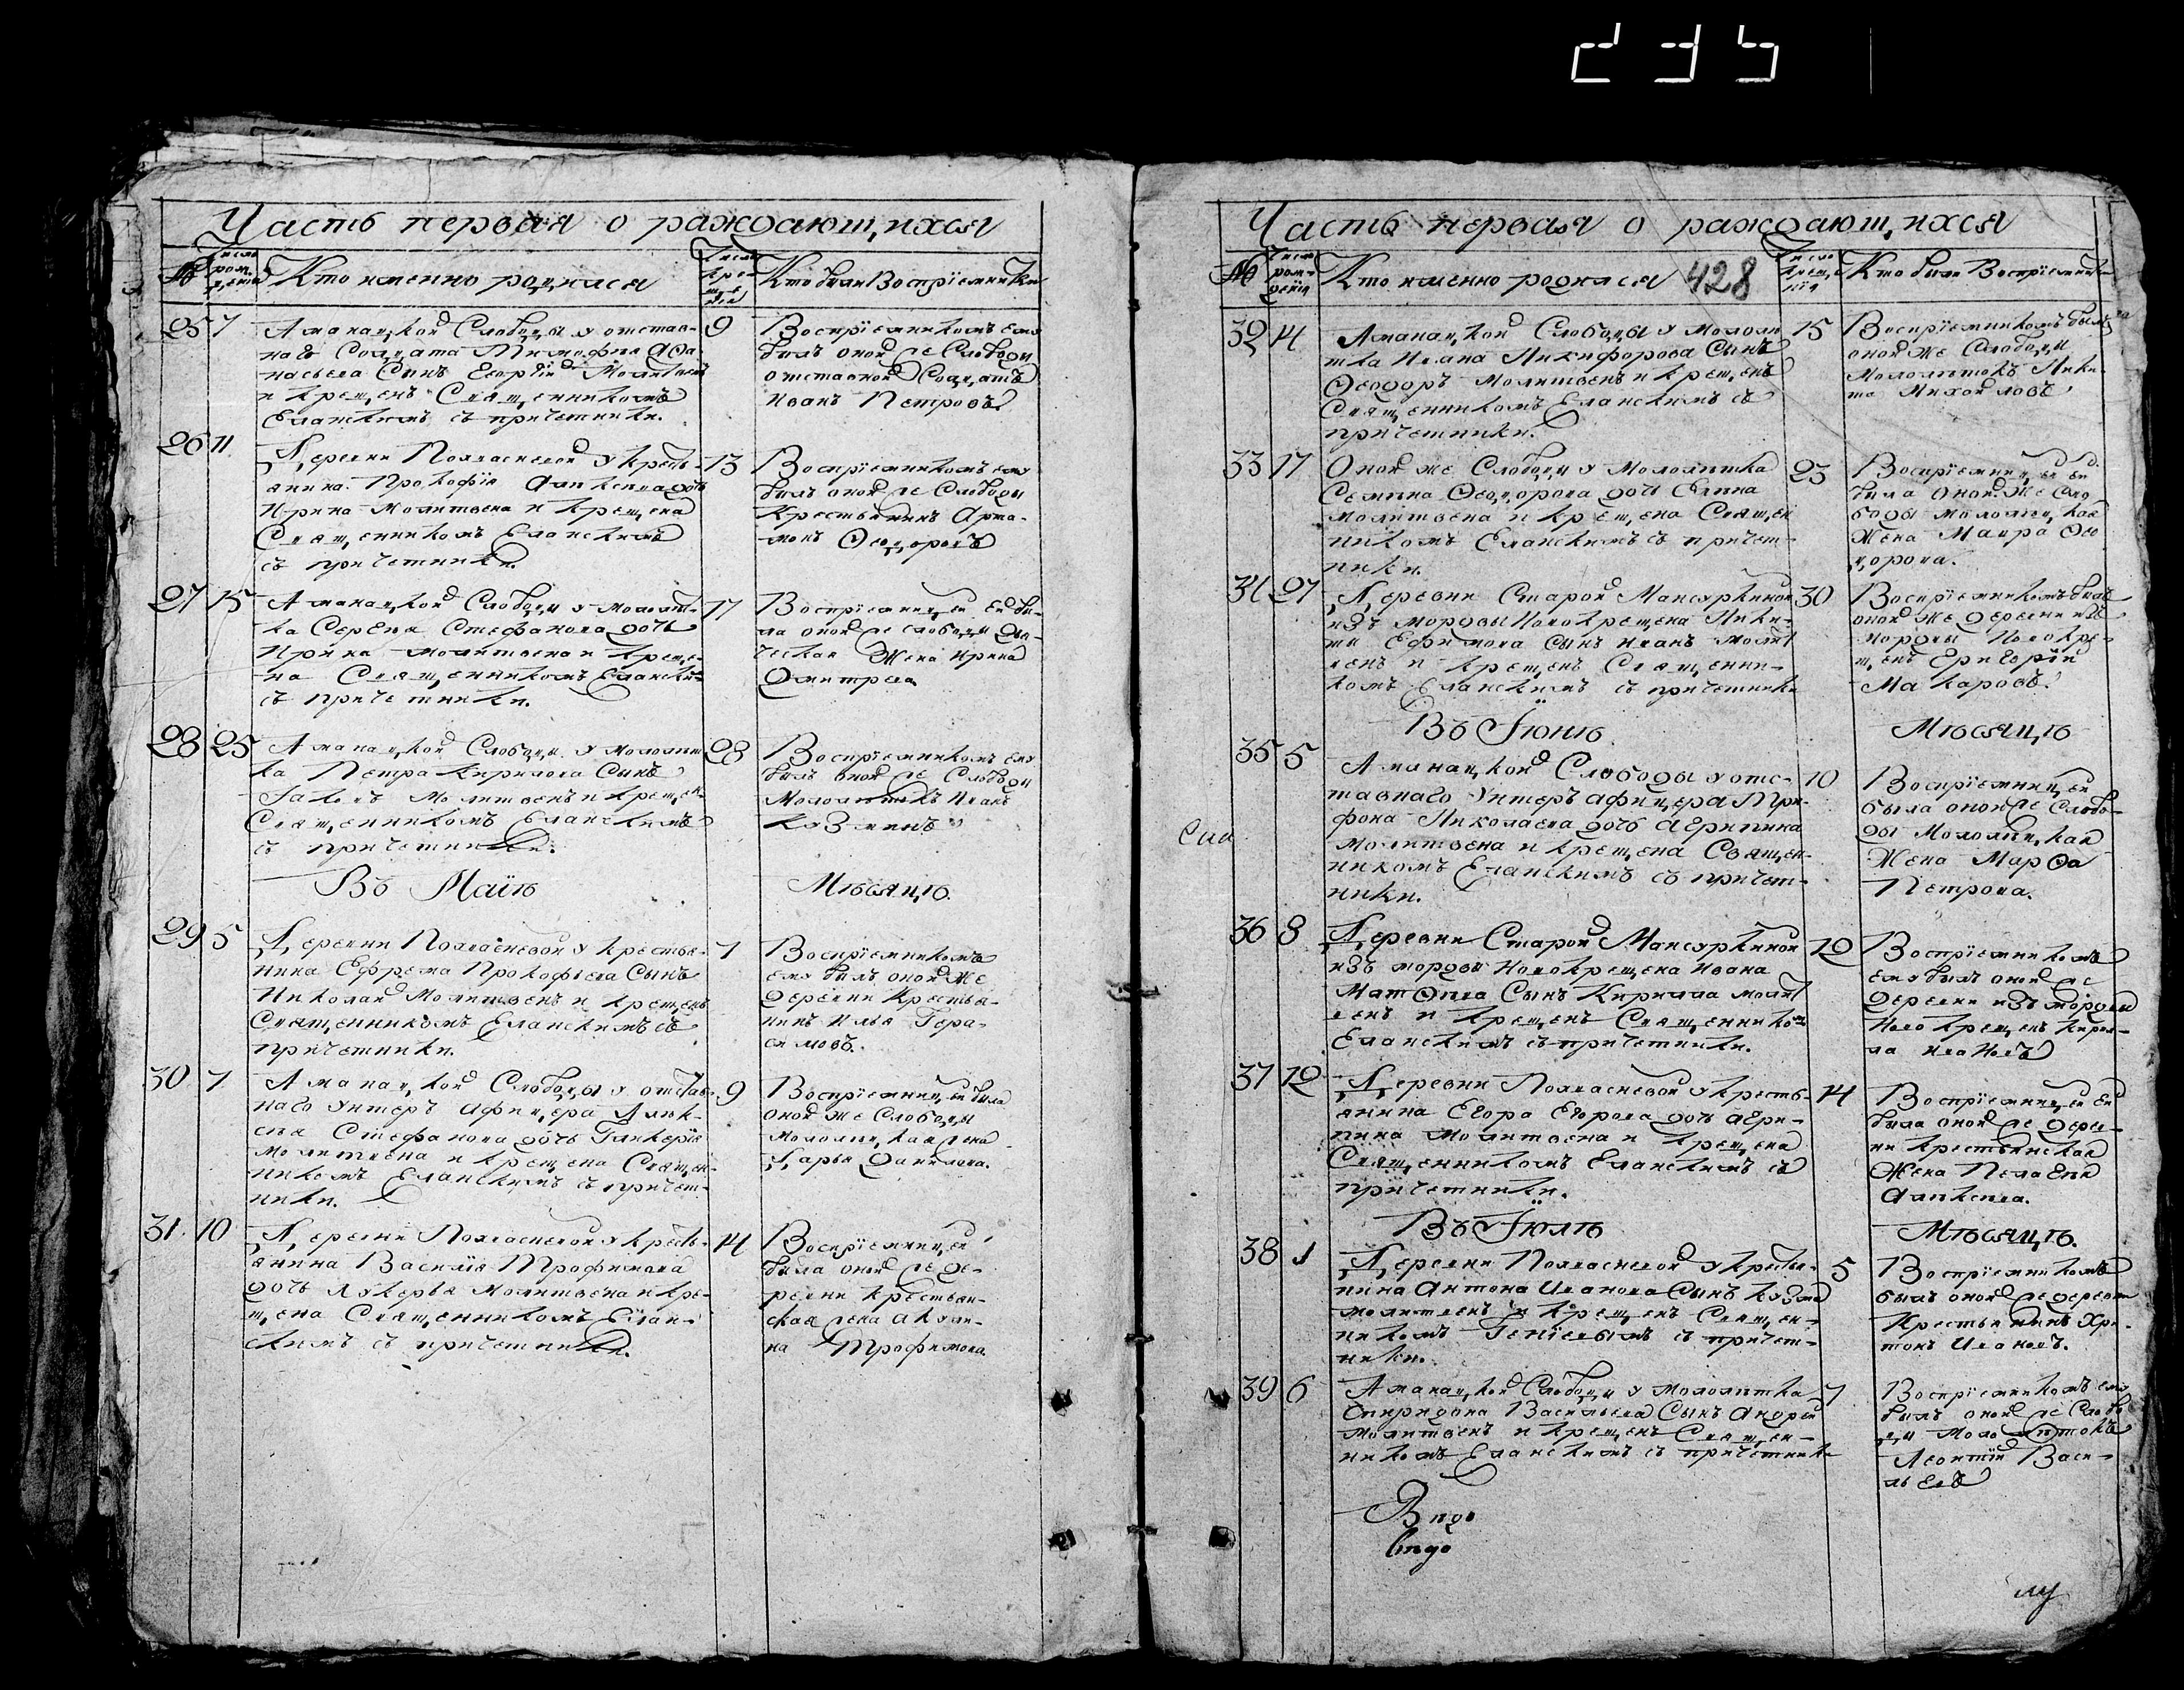 235
Часть первая о раждающихся
№
Число рождения
Кто именно родился
Число крещения
Кто были Восприемники
25 7 Аманацкой Слободы у отстав-
наго Солдата Тимофея Афа-
насьева Сынъ Георгий Молитвенъ
и крещенъ Священникомъ
Еланскимъ съ причетники.
9 Восприемникомъ ему
былъ оной же Слободы
отставной Солдатъ
Иванъ Петровъ
26 11 Деревни Полдасневой у кресть-
янина Прокофія Алексеева дочь
Ирина молитвена и крещена
Священникомъ Еланскимъ
съ причетники.
13 Восприемникомъ ему
былъ оной же Слободы
Крестьянинъ Арта-
монъ Ѳедоровъ
27 15 Аманацкой Слободы у моломт-
ка Сергея Стефанова дочь
Ирина молитвена и креще-
на Священникомъ Елански
съ причетники.
17 Восприемницей ей бы-
ла оной же слободы
жена Ирина
Дмитриева
28 25 Аманацкой Слободы у
ка Петра Кирилова Сынъ
Іаковъ молитвенъ и крещен
Священникомъ Еланскимъ
съ причетники.
28 Восприемникомъ ему
былъ оной же Слободы
Иванъ
Козминъ
Въ Маіѣ Мѣсяцѣ
29 5 Деревни Полдасневой у крестья-
нина Ефрема Прокофьева Сынъ
Николай Молитвенъ и крещенъ
Священникомъ Еланскимъ съ
причетники.
7 Восприемникомъ
ему былъ оной же
деревни Крестья-
нинъ Илья Гера-
симовъ.
30 7 Аманацкой Слободы у отстав-
наго Унтеръ Афицера Алек-
ея Стефанова дочь Гликерія
молитвена и крещена Священ-
никомъ Еланскимъ съ причет-
ники.
9 Восприемницей была
оной же Слободы
жена
Дарья Данилова.
31 10 Деревни Полдасневой у кресть-
янина Василія Трофимова
дочь Лукерья Молитвена и кре-
щена Священникомъ Елан-
скимъ съ причетники.
14 Восприемницей
была оной же де-
ревни крестьян-
ская жена Акули-
на Трофимова.
Часть первая о раждающихся
№
Число рождения
Кто именно родился
428
Число крещения
Кто были Восприемники
32 14 Аманацкой Слободы у
тка Ивана Никифорова Сынъ
Ѳеодоръ молитвенъ и крещенъ
Священникомъ Еланскимъ съ
причетники.
15 Восприемникомъ былъ
оной же Слободы
Ники-
та Михайловъ
33 17 Оной же Слободы у
Семина Ѳеодорова дочь Елена
молитвена и крещена Священ
никомъ Еланскимъ съ причет-
ники.
23 Восприемницей ей
была оной же Сло
боды
Жена Мавра Ѳео
дорова.
34 27 Деревни Старой Мансуркиной
изъ мордвы Новокрещена Ники-
ты Ефимова сынъ Иванъ молит
венъ и крещенъ Священни-
комъ Еланскимъ съ причетники
30 Восприемникомъ былъ
оной же деревни изъ
мордвы Новокре-
щенъ Григорій
Макаровъ.
Въ Іюнѣ Мѣсяцѣ
35 5 Аманацкой Слободы у отс-
тавнаго Унтеръ афицера Три-
фона Николаева дочь Агрипина
молитвена и крещена Священ-
никомъ Еланскимъ съ причет-
ники.
10 Восприемницей
была оной же Слобо-
ды
Жена Марѳа
Петрова.
36 8 Деревни Старой Мансуркиной
изъ мордвы Новокрещена Ивана
Матѳеева Сынъ Кирилла молит
венъ и крещенъ Священником
Еланскимъ съ причетники.
12 Восприемникомъ
ему былъ оной же
деревни изъ мордвы
Новокрещенъ Кирил-
ла Ивановъ
37 12 Деревни Полдасневой у кресть-
янина Егора Егорова дочь Агри-
пина молитвена и крещена
Священникомъ Еланскимъ съ
причетники.
14 Восприемницей ей
была оной же дерев-
ни крестьянская
Жена Пелагея
Алексеева.
Въ Іюлѣ Мѣсяцѣ.
38 1 Деревни Полдасневой у крестья-
нина Антона Иванова Сынъ Козма
молитвенъ и крещенъ Священ-
никомъ съ причет-
ники.
5 Восприемникомъ
былъ оной же деревни
Крестьянинъ
Ивановъ.
39 6 Аманацкой Слободы у
Спиридона Васильева Сынъ Андрей
молитвенъ и крещенъ Священ-
никомъ Еланскимъ съ причетники
7 Восприемникомъ ему
былъ оной же Слобо
ды
Леонтій Васи-
льевъ